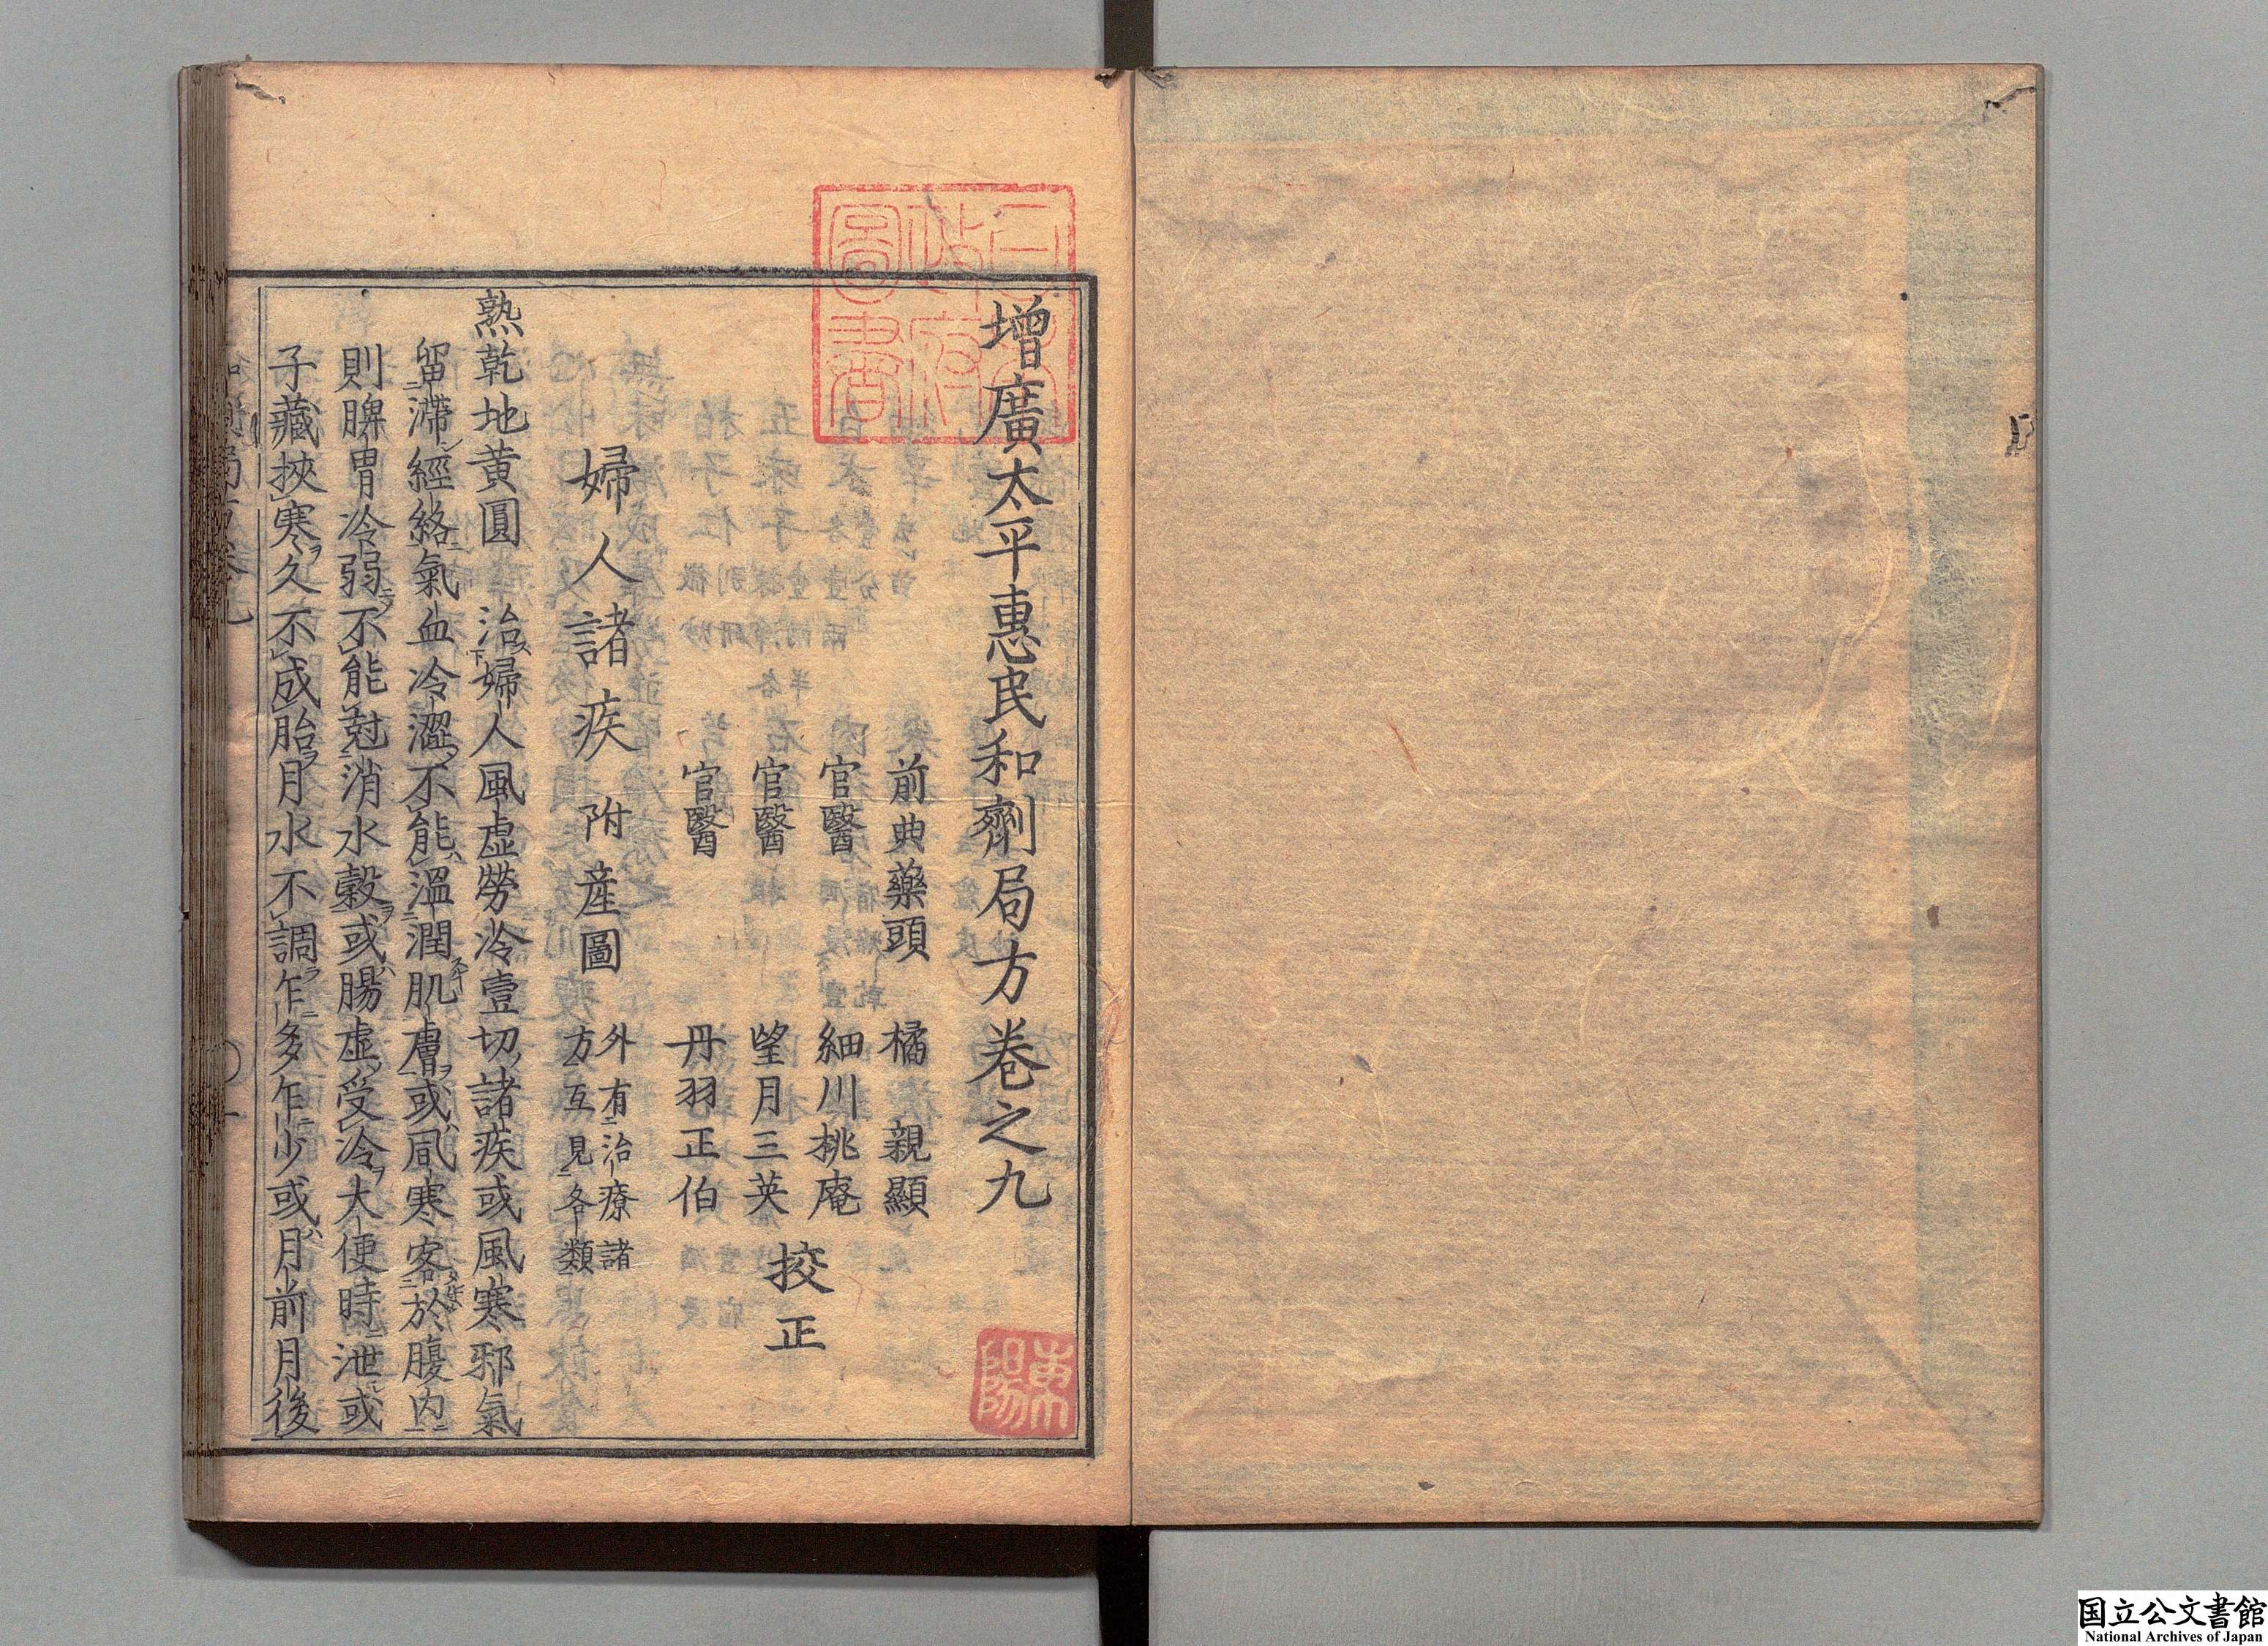 增廣太平惠民和劑局方卷之九
前典藥頭 橘 親顯
官醫 細川桃庵
官醫 望月三英
官醫 丹羽正伯
挍正
婦人諸疾 附産圖 外有治療諸
方互見各類
熟乾地黄圓 治婦人風虚勞冷壹切諸疾或風寒邪氣
留滯經絡氣血冷澀不能溫潤肌膚或風寒客於腹内
則脾胃冷弱不能尅消水穀或腸虚受冷大便時泄或
子藏挾寒久不成胎月水不調乍多乍少或月前月後
日本
政府
圖書
国立公文書館
National Archives of Japan